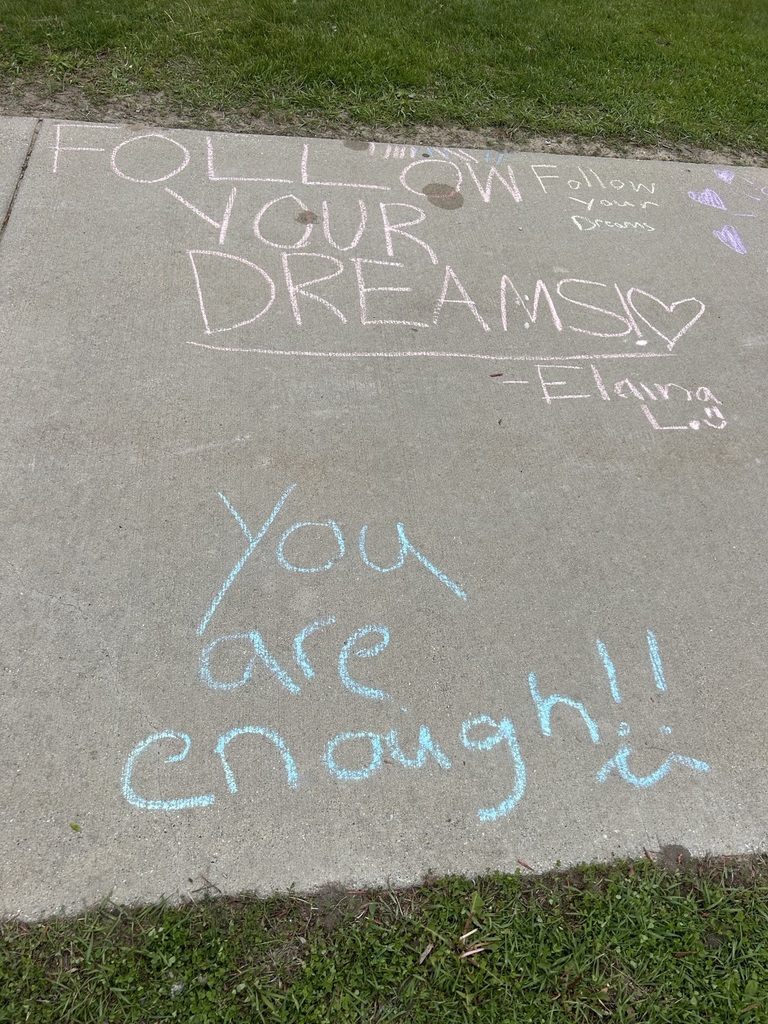 FOLLOW
YOUR
DREAMS!
-Elaina
L.
Follow
Your
Dreams
You
are
enough!!